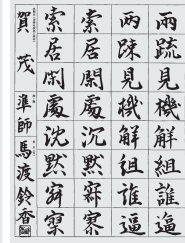 兩疏見機解組誰逼
兩踈見機解組誰逼
索居閑處沉默寂寥
索居閑處沈默寂寥
賀茂 準師 馬渡鈴香